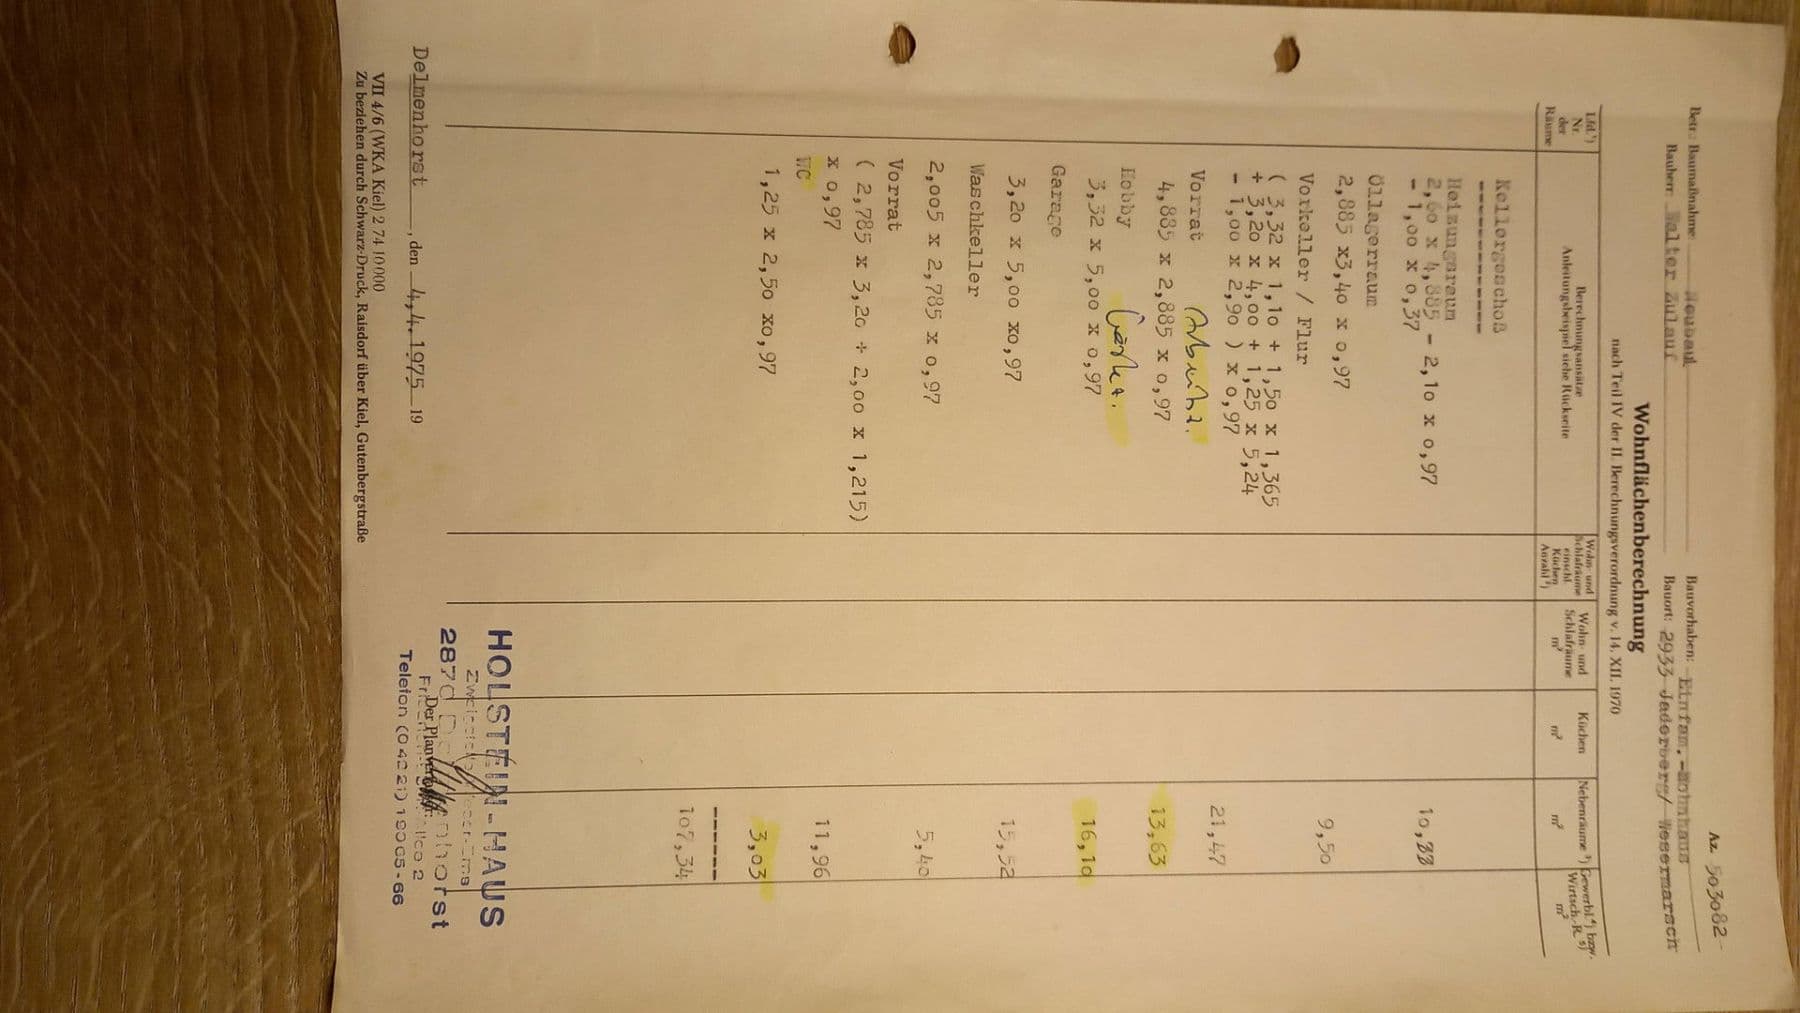 Az. 503082
Betr.: Baumaßnahme: Neubau
Bauvorhaben: Einfam.-Wohnhaus
Bauherr Walter Zulauf
Bauort: 2933 Jaderberg/ Wesermarsch
Wohnflächenberechnung
nach Teil IV der II. Berechnungsverordnung v. 14. XII. 1970
Lfd.¹) Nr. der Räume
Berechnungsansätze
Anleitungsbeispiel siehe Rückseite
Wohn- und Schlafräume einschl. Küchen Anzahl²)
Wohn- und Schlafräume m²
Küchen m²
Nebenräume ³) m²
Gewerbl.⁴) bzw. Wirtsch.-R.⁵) m²
Kellergeschoß
------------
Heizungsraum
2,60 x 4,885 - 2,10 x 0,97
- 1,00 x 0,37
Öllagerraum
2,885 x3,40 x 0,97 9,50
Vorkeller / Flur
( 3,32 x 1,10 + 1,50 x 1,365
+ 3,20 x 4,00 + 1,25 x 5,24
- 1,00 x 2,90 ) x 0,97 21,47
Vorrat
4,885 x 2,885 x 0,97 13,63
Hobby
3,32 x 5,00 x 0,97 16,10
Garage
3,20 x 5,00 x0,97 15,52
Waschkeller
2,005 x 2,785 x 0,97 5,40
Vorrat
( 2,785 x 3,20 + 2,00 x 1,215)
x 0,97 11,96
WC
1,25 x 2,50 x0,97 3,03
------
107,34
HOLSTEIN-HAUS
2870 Delmenhorst
Der Planverfasser:
Telefon (04221) 19065-66
Delmenhorst, den 4.4.1975 19
VII 4/6 (WKA Kiel) 2 74 10000
Zu beziehen durch Schwarz-Druck, Raisdorf über Kiel, Gutenbergstraße